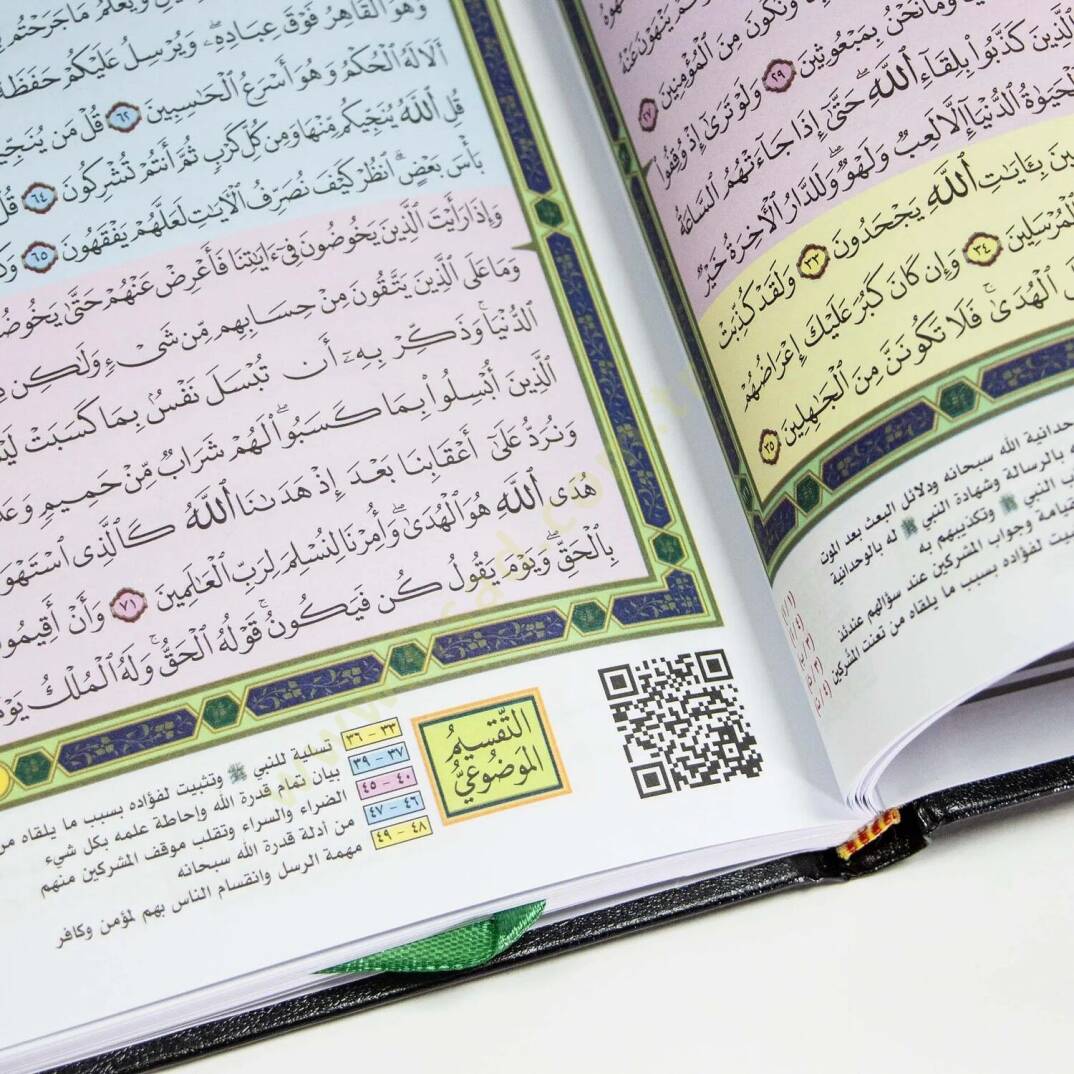 يَنْهَوْنَ عَنْهُ
وَنَكُونَ مِنَ ٱلْمُؤْمِنِينَ ٢٧
وَمَا نَحْنُ بِمَبْعُوثِينَ ٢٩ وَلَوْ تَرَىٰٓ إِذْ وُقِفُوا۟
ٱلَّذِينَ كَذَّبُوا۟ بِلِقَآءِ ٱللَّهِ ۖ حَتَّىٰٓ إِذَا جَآءَتْهُمُ ٱلسَّاعَةُ
ٱلْحَيَوٰةُ ٱلدُّنْيَآ إِلَّا لَعِبٌ وَلَهْوٌ ۖ وَلَلدَّارُ ٱلْءَاخِرَةُ خَيْرٌ
بِـَٔايَـٰتِ ٱللَّهِ يَجْحَدُونَ ٣٣ وَلَقَدْ كُذِّبَتْ
ٱلْمُرْسَلِينَ ٣٤ وَإِن كَانَ كَبُرَ عَلَيْكَ إِعْرَاضُهُمْ
ٱلْهُدَىٰ ۚ فَلَا تَكُونَنَّ مِنَ ٱلْجَـٰهِلِينَ ٣٥
الله سبحانه ودلائل البعث بعد الموت
بالرسالة وشهادة النبي ﷺ له بالوحدانية
النبي ﷺ وتكذيبهم به
وجواب المشركين عند سؤالهم عندئذ
لفؤاده بسبب ما يلقاه من تعنت المشركين
وَيَعْلَمُ مَا جَرَحْتُم
وَهُوَ ٱلْقَاهِرُ فَوْقَ عِبَادِهِۦ ۖ وَيُرْسِلُ عَلَيْكُمْ حَفَظَةً
أَلَا لَهُ ٱلْحُكْمُ وَهُوَ أَسْرَعُ ٱلْحَـٰسِبِينَ ٦٢ قُلْ مَن
قُلِ ٱللَّهُ يُنَجِّيكُم مِّنْهَا وَمِن كُلِّ كَرْبٍ ثُمَّ أَنتُمْ تُشْرِكُونَ ٦٤ قُلْ
بَأْسَ بَعْضٍ ۗ ٱنظُرْ كَيْفَ نُصَرِّفُ ٱلْـَٔايَـٰتِ لَعَلَّهُمْ يَفْقَهُونَ ٦٥
وَإِذَا رَأَيْتَ ٱلَّذِينَ يَخُوضُونَ فِىٓ ءَايَـٰتِنَا فَأَعْرِضْ عَنْهُمْ حَتَّىٰ
وَمَا عَلَى ٱلَّذِينَ يَتَّقُونَ مِنْ حِسَابِهِم مِّن شَىْءٍ وَلَـٰكِن
ٱلدُّنْيَا ۚ وَذَكِّرْ بِهِۦٓ أَن تُبْسَلَ نَفْسٌۢ بِمَا كَسَبَتْ
ٱلَّذِينَ أُبْسِلُوا۟ بِمَا كَسَبُوا۟ ۖ لَهُمْ شَرَابٌ مِّنْ حَمِيمٍ
وَنُرَدُّ عَلَىٰٓ أَعْقَابِنَا بَعْدَ إِذْ هَدَىٰنَا ٱللَّهُ كَٱلَّذِى
هُدَى ٱللَّهِ هُوَ ٱلْهُدَىٰ ۖ وَأُمِرْنَا لِنُسْلِمَ لِرَبِّ ٱلْعَـٰلَمِينَ ٧١ وَأَنْ
بِٱلْحَقِّ ۖ وَيَوْمَ يَقُولُ كُن فَيَكُونُ ۚ قَوْلُهُ ٱلْحَقُّ ۚ وَلَهُ ٱلْمُلْكُ
التقسيم
الموضوعي
٣٣ - ٣٦ تسلية للنبي ﷺ وتثبيت لفؤاده بسبب ما يلقاه
٣٧ - ٣٩ بيان تمام قدرة الله وإحاطة علمه بكل شيء
٤٠ - ٤٥ الضراء والسراء وتقلب موقف المشركين منهم
٤٦ - ٤٧ من أدلة قدرة الله سبحانه
٤٨ - ٤٩ مهمة الرسل وانقسام الناس بهم لمؤمن وكافر